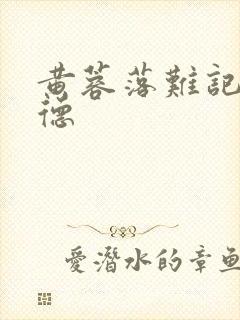 黃蓉落難記
德
愛潛水的章魚